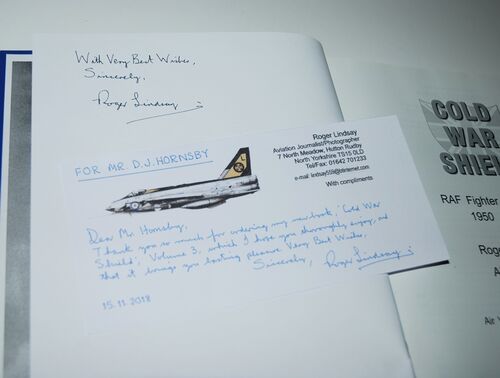 With Very Best Wishes,
Sincerely,
Roger Lindsay
FOR MR. D.J. HORNSBY
Roger Lindsay
Aviation Journalist/Photographer
7 North Meadow, Hutton Rudby
North Yorkshire TS15 0LD
Tel/Fax: 01642 701233
With compliments
Dear Mr. Hornsby,
Thank you so much for ordering my new book, 'Cold War
Shield', Volume 3, which I hope you thoroughly enjoy, and
that it brings you lasting pleasure. Very Best Wishes,
Sincerely, Roger Lindsay
15.11.2018
COLD
WAR
SHIE
RAF Fighter
1950
Rog
A
Air